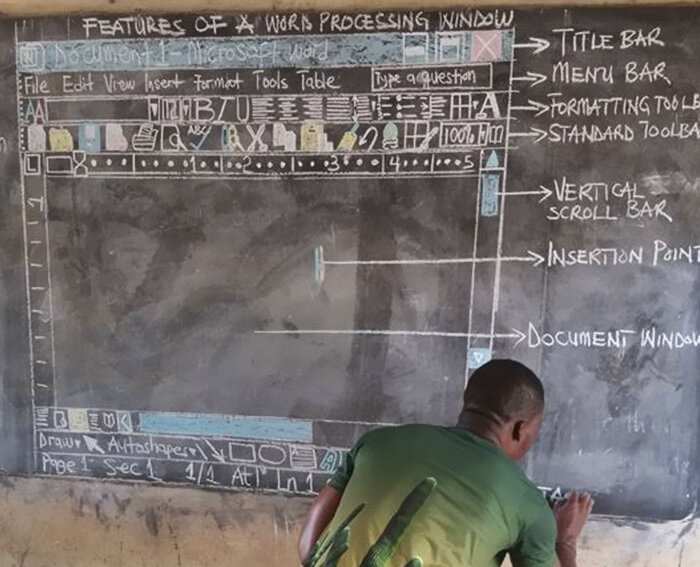 FEATURES OF A WORD PROCESSING WINDOW
Document 1 - Microsoft Word
TITLE BAR
File Edit View Insert Format Tools Table
Type a question
MENU BAR
AA
B I U
A
FORMATTING
ABC
100%
STANDARD
L
1 2 3 4 5
VERTICAL
SCROLL BAR
1
INSERTION POINT
DOCUMENT WINDOW
Draw Autoshapes
A
Page 1 Sec 1 1/1 At 1" Ln 1